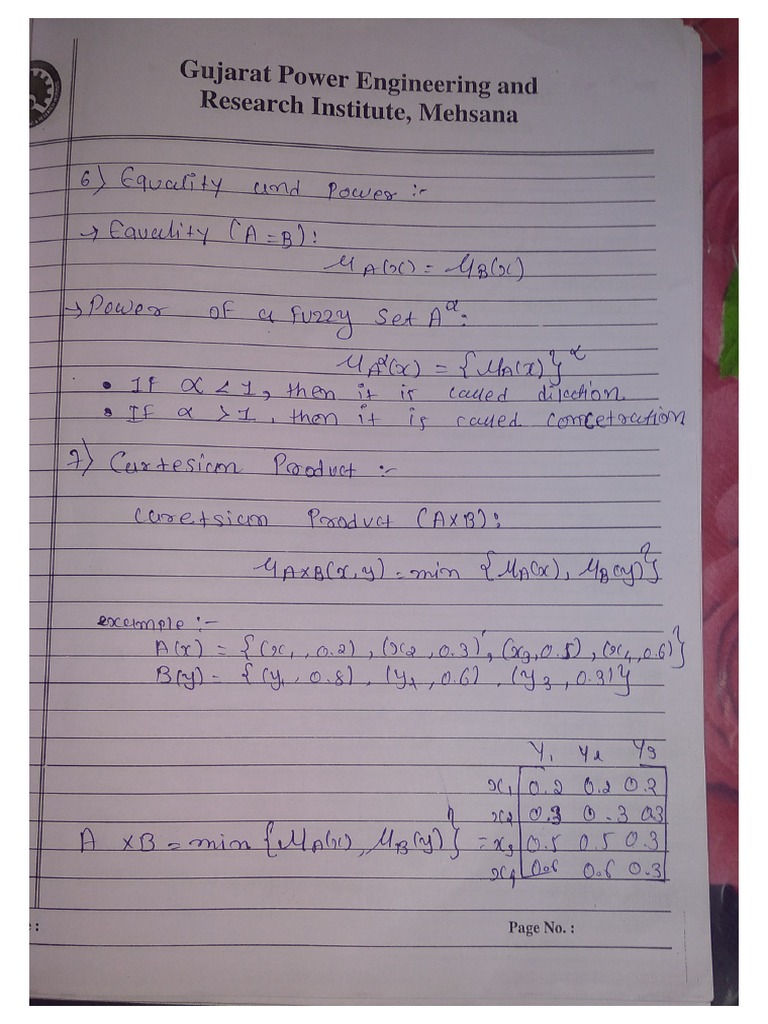 Gujarat Power Engineering and
Research Institute, Mehsana
6) Equality and Power :-
→ Equality (A = B) :
μA(x) = μB(x)
→ Power of a fuzzy set A^α :
μA^α(x) = {μA(x)}^α
• If α < 1, then it is called dilection
• If α > 1, then it is called concetration
7) Cartesian Product :-
Caretsian Product (A×B) :
μA×B(x,y) = min {μA(x), μB(y)}
example :-
A(x) = {(x1, 0.2), (x2, 0.3), (x3, 0.5), (x4, 0.6)}
B(y) = {(y1, 0.8), (y2, 0.6), (y3, 0.3)}
y1 y2 y3
x1 0.2 0.2 0.2
x2 0.3 0.3 0.3
A × B = min {μA(x), μB(y)} = x3 0.5 0.5 0.3
x4 0.6 0.6 0.3
:
Page No. :